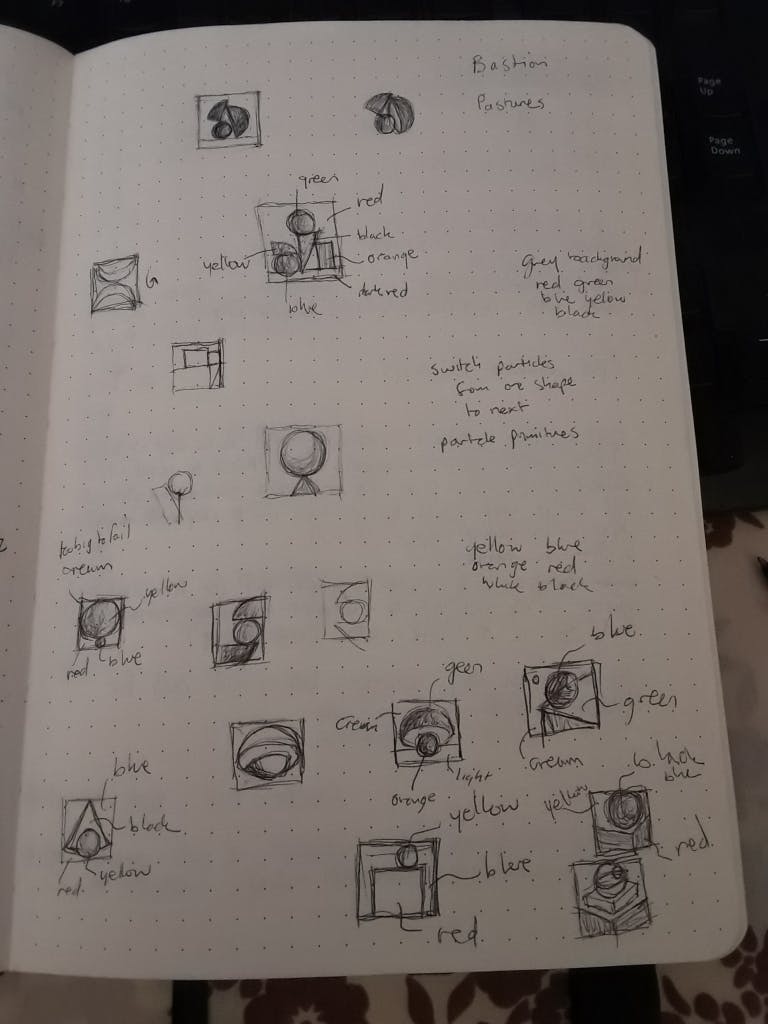 Page
Up
Page
Down
Bastion
Pastures
green
red
black
yellow
orange
dark red
blue
G
Grey background
red green
blue yellow
black
switch particles
from one shape
to next
particle primitives
too big to fail
cream
yellow
red
blue
yellow blue
orange red
white black
blue
green
cream
geen
cream
light
orange
blue
black
yellow
red
yellow
blue
red
black
blue
yellow
red